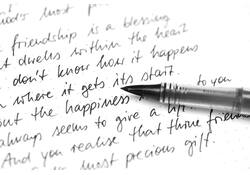 most p
friendship is a blessing
t dwells within the heart
don't know how it happens
n where it gets its start.
out the happiness to you
always seems to give a lif
And you realise that those friend
most precious gift.